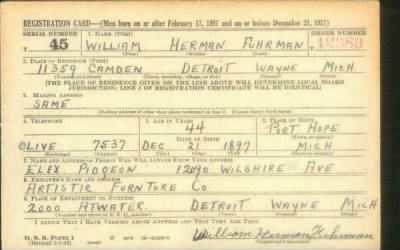 REGISTRATION CARD—(Men born on or after February 17, 1897 and on or before December 31, 1921)
SERIAL NUMBER 1. NAME (Print) ORDER NUMBER
T 45 WILLIAM HERMAN FUHRMAN 12389
(First) (Middle) (Last)
2. PLACE OF RESIDENCE (Print)
11359 CAMDEN DETROIT WAYNE MICH
(Number and street) (Town, township, village, or city) (County) (State)
[THE PLACE OF RESIDENCE GIVEN ON THE LINE ABOVE WILL DETERMINE LOCAL BOARD
JURISDICTION; LINE 2 OF REGISTRATION CERTIFICATE WILL BE IDENTICAL]
3. MAILING ADDRESS
SAME
[Mailing address if other than place indicated on line 2. If same insert word same]
4. TELEPHONE 5. AGE IN YEARS 6. PLACE OF BIRTH
44 PORT HOPE
DATE OF BIRTH
OLIVE 7537 DEC 21 1897 MICH
(Exchange) (Number) (Mo.) (Day) (Yr.) (State or country)
7. NAME AND ADDRESS OF PERSON WHO WILL ALWAYS KNOW YOUR ADDRESS
ELEX PIDGEON 12090 WILSHIRE AVE
8. EMPLOYER'S NAME AND ADDRESS
ARTISTIC FURNTURE CO
9. PLACE OF EMPLOYMENT OR BUSINESS
2000 ATWATER DETROIT WAYNE MICH
(Number and street or R. F. D. number) (Town) (County) (State)
I AFFIRM THAT I HAVE VERIFIED ABOVE ANSWERS AND THAT THEY ARE TRUE.
D. S. S. Form 1
William Herman Fuhrman